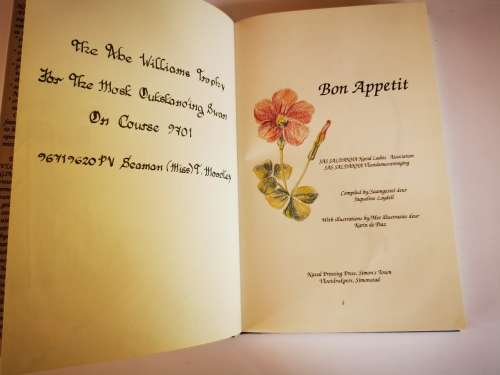 The Abe Williams Trophy
For The Most Outstanding Swan
On Course 9701
96719620PV Seaman (Miss) T. Moodley
Bon Appetit
SAS SALDANHA Naval Ladies Association
SAS SALDANHA Vlootdamesvereniging
Compiled by/Saamgestel deur
Jaqueline Loydell
With illustrations by/Met illustrasies deur
Karin de Bras
Naval Printing Press, Simon's Town
Vlootdrukpers, Simonstad